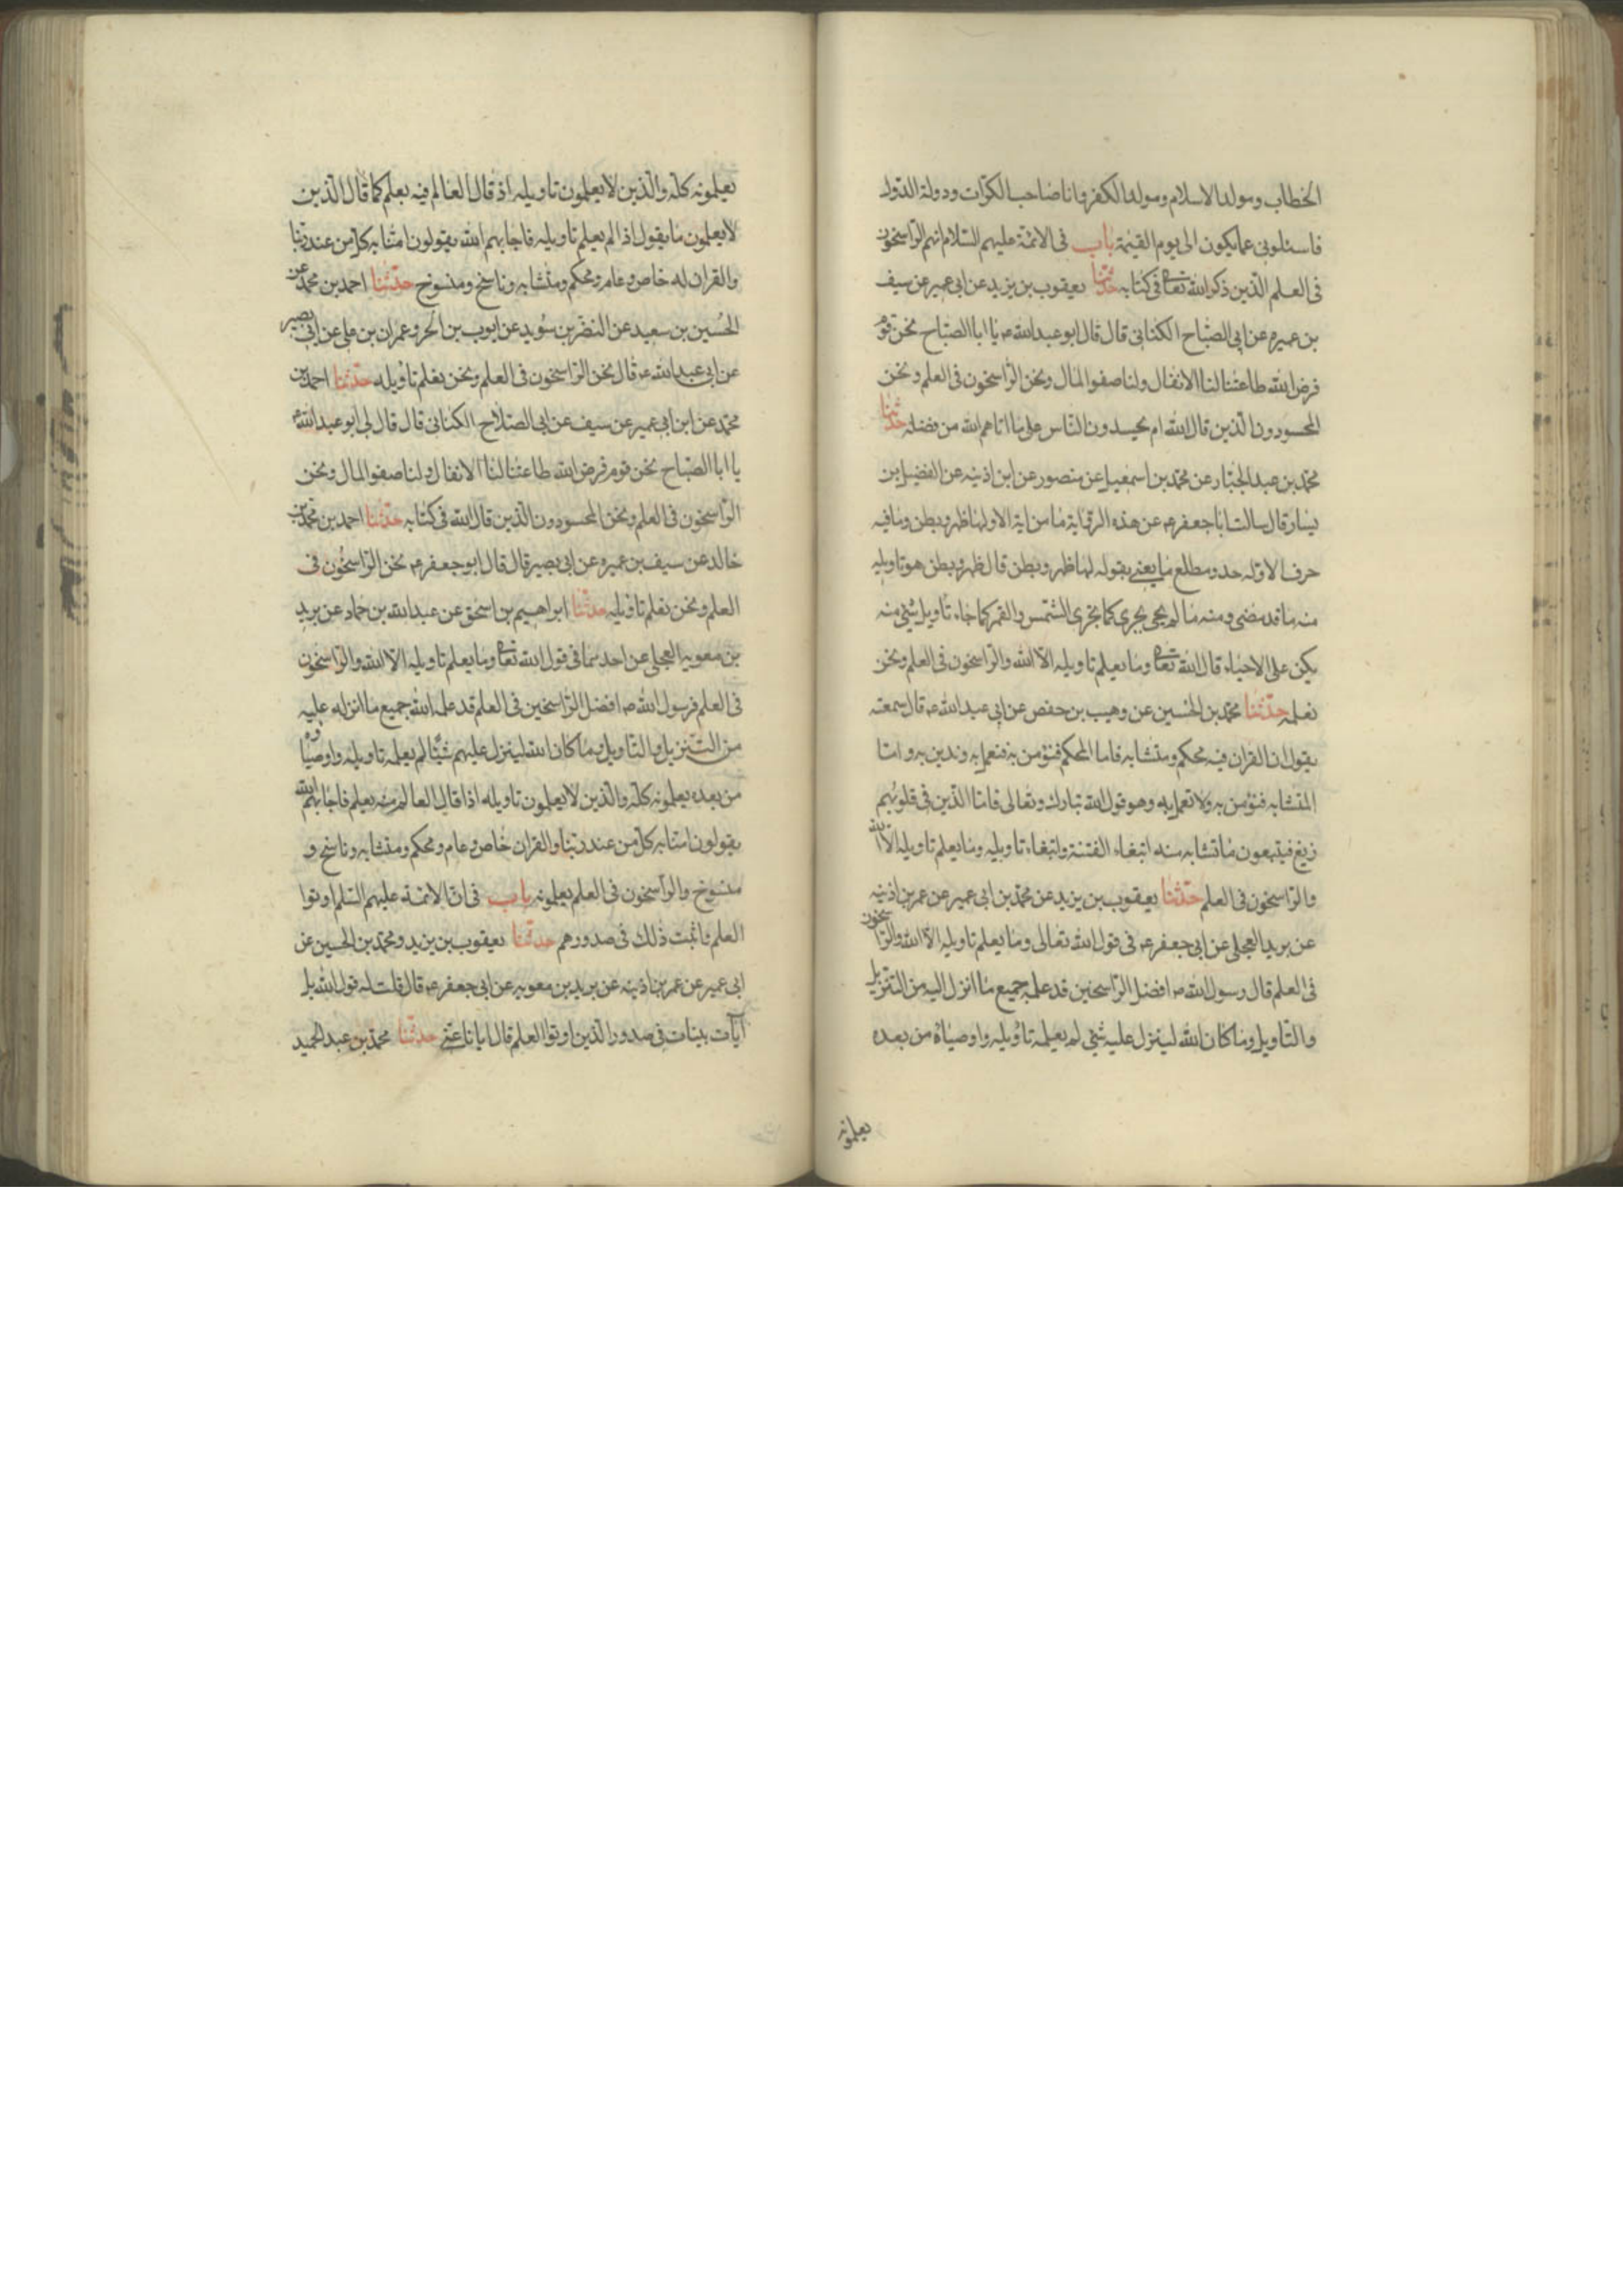 الخطاب ومولد الاسلام ومولد الكفر وانا صاحب الكرّات ودولة الدّول
فاسئلونى عما يكون الى يوم القيٰمة باب فى الائمّة عليهم السّلام انهم الرّاسخون
فى العلم الّذين ذكر الله تعالى فى كتابه حدّثنا يعقوب بن يزيد عن ابى عمير عن سيف
بن عميره عن ابى الصّباح الكنانى قال قال ابو عبد الله ع يا ابا الصّباح نحن قوم
فرض الله طاعتنا لنا الانفال ولنا صفو المال ونحن الرّاسخون فى العلم ونحن
المحسودون الّذين قال الله ام يحسدون النّاس على ما اتاهم الله من فضله حدّثنا
محمّد بن عبد الجبّار عن محمّد بن اسمعيل عن منصور عن ابن اذينه عن الفضيل بن
يسار قال سالت ابا جعفر ع عن هذه الرقاية ما من اية الا ولها ظهر وبطن وما فيه
حرف الا وله حد ومطلع ما يعنى بقوله لها ظهر وبطن قال ظهر وبطن هو تاويله
منه ما قد مضى ومنه ما لم يجى يجرى كما تجرى الشّمس والقمر كما جاء تاويل شئ منه
يكن على الاحياء قال الله تعالى وما يعلم تاويله الّا الله والرّاسخون فى العلم ونحن
نعلمه حدّثنا محمّد بن الحسين عن وهيب بن حفص عن ابى عبد الله ع قال سمعته
يقول ان القران فيه محكم ومتشابه فاما المحكم فنؤمن به فنعمل به وندين به وامّا
المتشابه فنؤمن به ولا نعمل به وهو قول الله تبارك وتعالى فامّا الّذين فى قلوبهم
زيغ فيتبعون ما تشابه منه ابتغاء الفتنة وابتغاء تاويله وما يعلم تاويله الّا الله
والرّاسخون فى العلم حدّثنا يعقوب بن يزيد عن محمّد بن ابى عمير عن عمر بن اذينه
عن بريد العجلى عن ابى جعفر ع فى قول الله تعالى وما يعلم تاويله الّا الله والرّاسخون
فى العلم قال رسول الله ص افضل الرّاسخين قد علم جميع ما انزل اليه من التنزيل
والتّاويل وما كان الله لينزل عليه شئ لم يعلمه تاويله واوصياؤه من بعده
يعلمونه
يعلمونه كلّه والّذين لا يعلمون تاويله اذ قال العالم فيه بعلم كما قال الّذين
لا يعلمون ما يقول اذا لم يعلم تاويله فاجابهم الله يقولون امنّا به كل من عند ربّنا
والقران له خاص وعام ومحكم ومتشابه وناسخ ومنسوخ حدّثنا احمد بن محمّد عن
الحُسين بن سعيد عن النضر بن سُويد عن ايوب بن الحر وعمران بن على عن ابى بصير
عن ابى عبد الله ع قال نحن الرّاسخون فى العلم ونحن نعلم تاويله حدّثنا احمد بن
محمّد عن ابن ابى عمير عن سيف عن ابى الصّلاح الكنانى قال قال لى ابو عبد الله ع
يا ابا الصّباح نحن قوم فرض الله طاعتنا لنا الانفال ولنا صفو المال ونحن
الرّاسخون فى العلم ونحن المحسودون الّذين قال الله فى كتابه حدّثنا احمد بن محمّد بن
خالد عن سيف بن عميره عن ابى بصير قال قال ابو جعفر ع نحن الرّاسخُون فى
العلم ونحن نعلم تاويله حدّثنا ابراهيم بن اسحٰق عن عبد الله بن حماد عن بريد
بن معويه العجلى عن احدهما فى قول الله تعالى وما يعلم تاويله الّا الله والرّاسخون
فى العلم فرسول الله ص افضل الرّاسخين فى العلم قد علمه الله جميع ما انزله عليه
من التّنزيل والتّاويل وما كان الله لينزل عليهم شيئًا لم يعلمه تاويله واوصياؤه
من بعده يعلمونه كلّه والّذين لا يعلمون تاويله اذا قال العالم منه بعلم فاجابهم الله
يقولون امنّا به كلّ من عند ربّنا والقران خاص وعام ومحكم ومتشابه وناسخ و
منسوخ والرّاسخون فى العلم يعلمونه باب فى انّ الائمّة عليهم السّلم اوتوا
العلم واثبت ذٰلك فى صدورهم حدّثنا يعقوب بن يزيد ومحمّد بن الحسين عن
ابى عمير عن عمر بن اذينه عن بريد بن معويه عن ابى جعفر ع قال قلت له قول الله بل
آيات بينات فى صدور الّذين اوتوا العلم قال ايانا عنى حدّثنا محمّد بن عبد الحميد